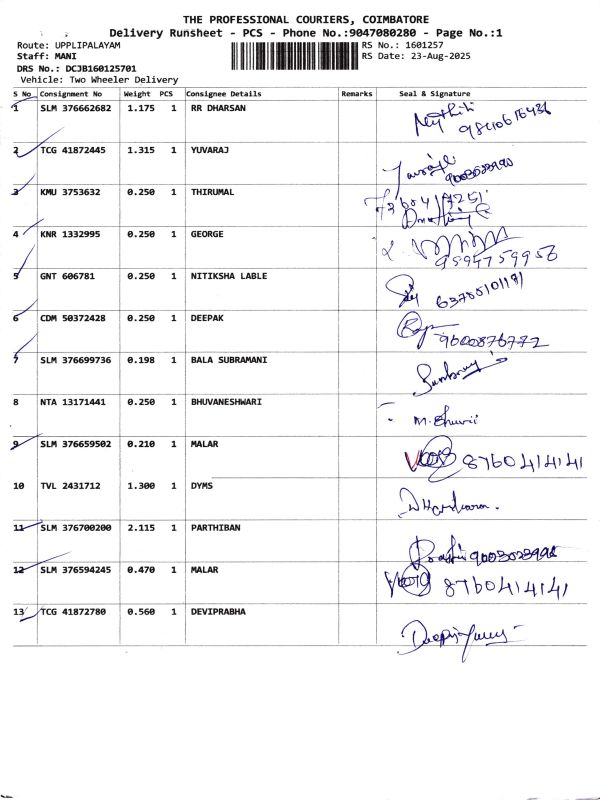 THE PROFESSIONAL COURIERS, COIMBATORE
Delivery Runsheet - PCS - Phone No.:9047080280 - Page No.:1
Route: UPPLIPALAYAM
RS No.: 1601257
Staff: MANI
RS Date: 23-Aug-2025
DRS No.: DCJB160125701
Vehicle: Two Wheeler Delivery
S No Consignment No Weight PCS Consignee Details Remarks Seal & Signature
1 SLM 376662682 1.175 1 RR DHARSAN
2 TCG 41872445 1.315 1 YUVARAJ
3 KMU 3753632 0.250 1 THIRUMAL
4 KNR 1332995 0.250 1 GEORGE
5 GNT 606781 0.250 1 NITIKSHA LABLE
6 CDM 50372428 0.250 1 DEEPAK 9600876772
7 SLM 376699736 0.198 1 BALA SUBRAMANI
8 NTA 13171441 0.250 1 BHUVANESHWARI M. Bhuvii
9 SLM 376659502 0.210 1 MALAR 8760414141
10 TVL 2431712 1.300 1 DYMS
11 SLM 376700200 2.115 1 PARTHIBAN
12 SLM 376594245 0.470 1 MALAR 8760414141
13 TCG 41872780 0.560 1 DEVIPRABHA